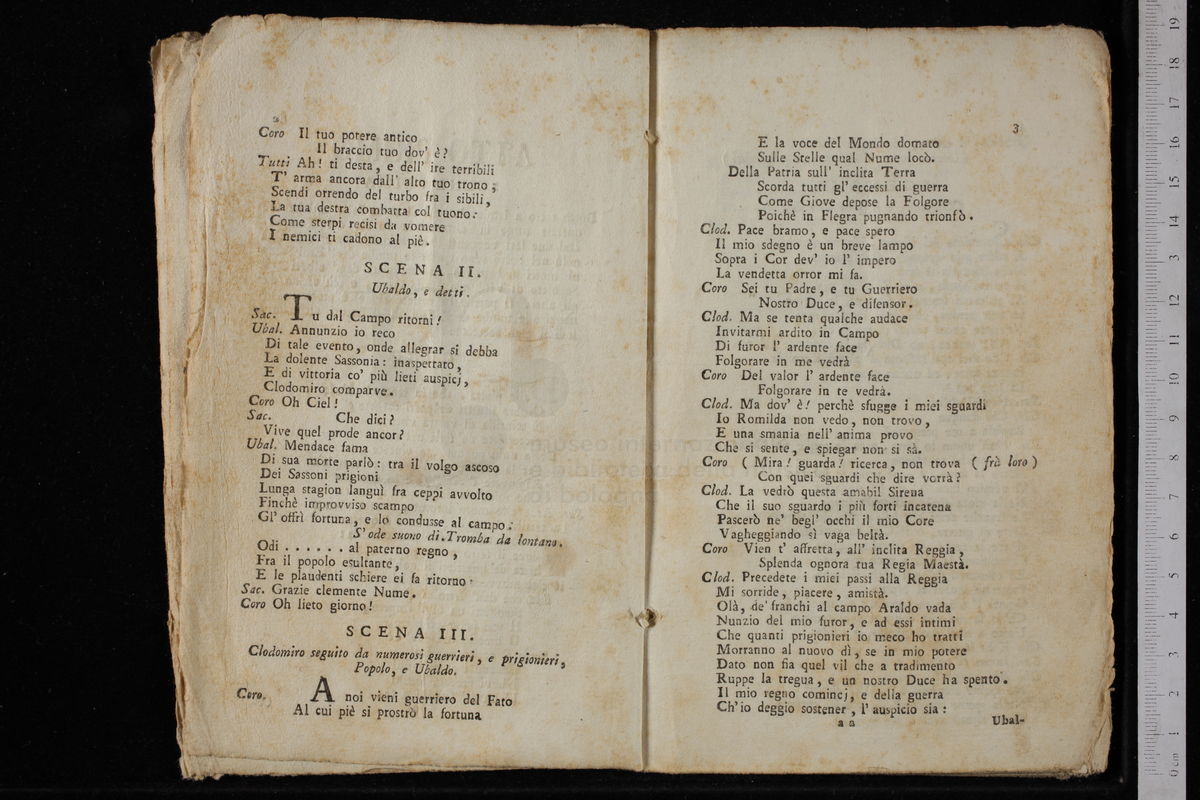 2
Coro Il tuo potere antico
Il braccio tuo dov' è?
Tutti Ah! ti desta, e dell' ire terribili
T' arma ancora dall' alto tuo trono;
Scendi orrendo del turbo fra i sibili,
La tua destra combatta col tuono:
Come sterpi recisi da vomere
I nemici ti cadono al piè.
SCENA II.
Ubaldo, e detti.
Sac. Tu dal Campo ritorni!
Ubal. Annunzio io reco
Di tale evento, onde allegrar si debba
La dolente Sassonia: inaspettato,
E di vittoria co' più lieti auspicj,
Clodomiro comparve.
Coro Oh Ciel!
Sac. Che dici?
Vive quel prode ancor?
Ubal. Mendace fama
Di sua morte parlò: tra il volgo ascoso
Dei Sassoni prigioni
Lunga stagion languì fra ceppi avvolto
Finchè improvviso scampo
Gl' offrì fortuna, e lo condusse al campo:
S' ode suono di Tromba da lontano.
Odi . . . . . . al paterno regno,
Fra il popolo esultante,
E le plaudenti schiere ei fa ritorno.
Sac. Grazie clemente Nume.
Coro Oh lieto giorno!
SCENA III.
Clodomiro seguito da numerosi guerrieri, e prigionieri,
Popolo, e Ubaldo.
Coro. A noi vieni guerriero del Fato
Al cui piè si prostrò la fortuna
3
E la voce del Mondo domato
Sulle Stelle qual Nume locò.
Della Patria sull' inclita Terra
Scorda tutti gl' eccessi di guerra
Come Giove depose la Folgore
Poichè in Flegra pugnando trionfò.
Clod. Pace bramo, e pace spero
Il mio sdegno è un breve lampo
Sopra i Cor dev' io l' impero
La vendetta orror mi fa.
Coro Sei tu Padre, e tu Guerriero
Nostro Duce, e difensor.
Clod. Ma se tenta qualche audace
Invitarmi ardito in Campo
Di furor l' ardente face
Folgorare in me vedrà
Coro Del valor l' ardente face
Folgorare in te vedrà.
Clod. Ma dov' è! perchè sfugge i miei sguardi
Io Romilda non vedo, non trovo,
E una smania nell' anima provo
Che si sente, e spiegar non si sà.
Coro ( Mira! guarda! ricerca, non trova ( frà loro )
Con quei sguardi che dire vorrà?
Clod. La vedrò questa amabil Sirena
Che il suo sguardo i più forti incatena
Pascerò ne' begl' occhi il mio Core
Vagheggiando sì vaga beltà.
Coro Vien t' affretta, all' inclita Reggia,
Splenda ognora tua Regia Maestà.
Clod. Precedete i miei passi alla Reggia
Mi sorride, piacere, amistà.
Olà, de' franchi al campo Araldo vada
Nunzio del mio furor, e ad essi intimi
Che quanti prigionieri io meco ho tratti
Morranno al nuovo dì, se in mio potere
Dato non fia quel vil che a tradimento
Ruppe la tregua, e un nostro Duce ha spento.
Il mio regno comincj, e della guerra
Ch'io deggio sostener, l' auspicio sia:
a a
Ubal-
0 cm 1 2 3 4 5 6 7 8 9 10 11 12 13 14 15 16 17 18 19